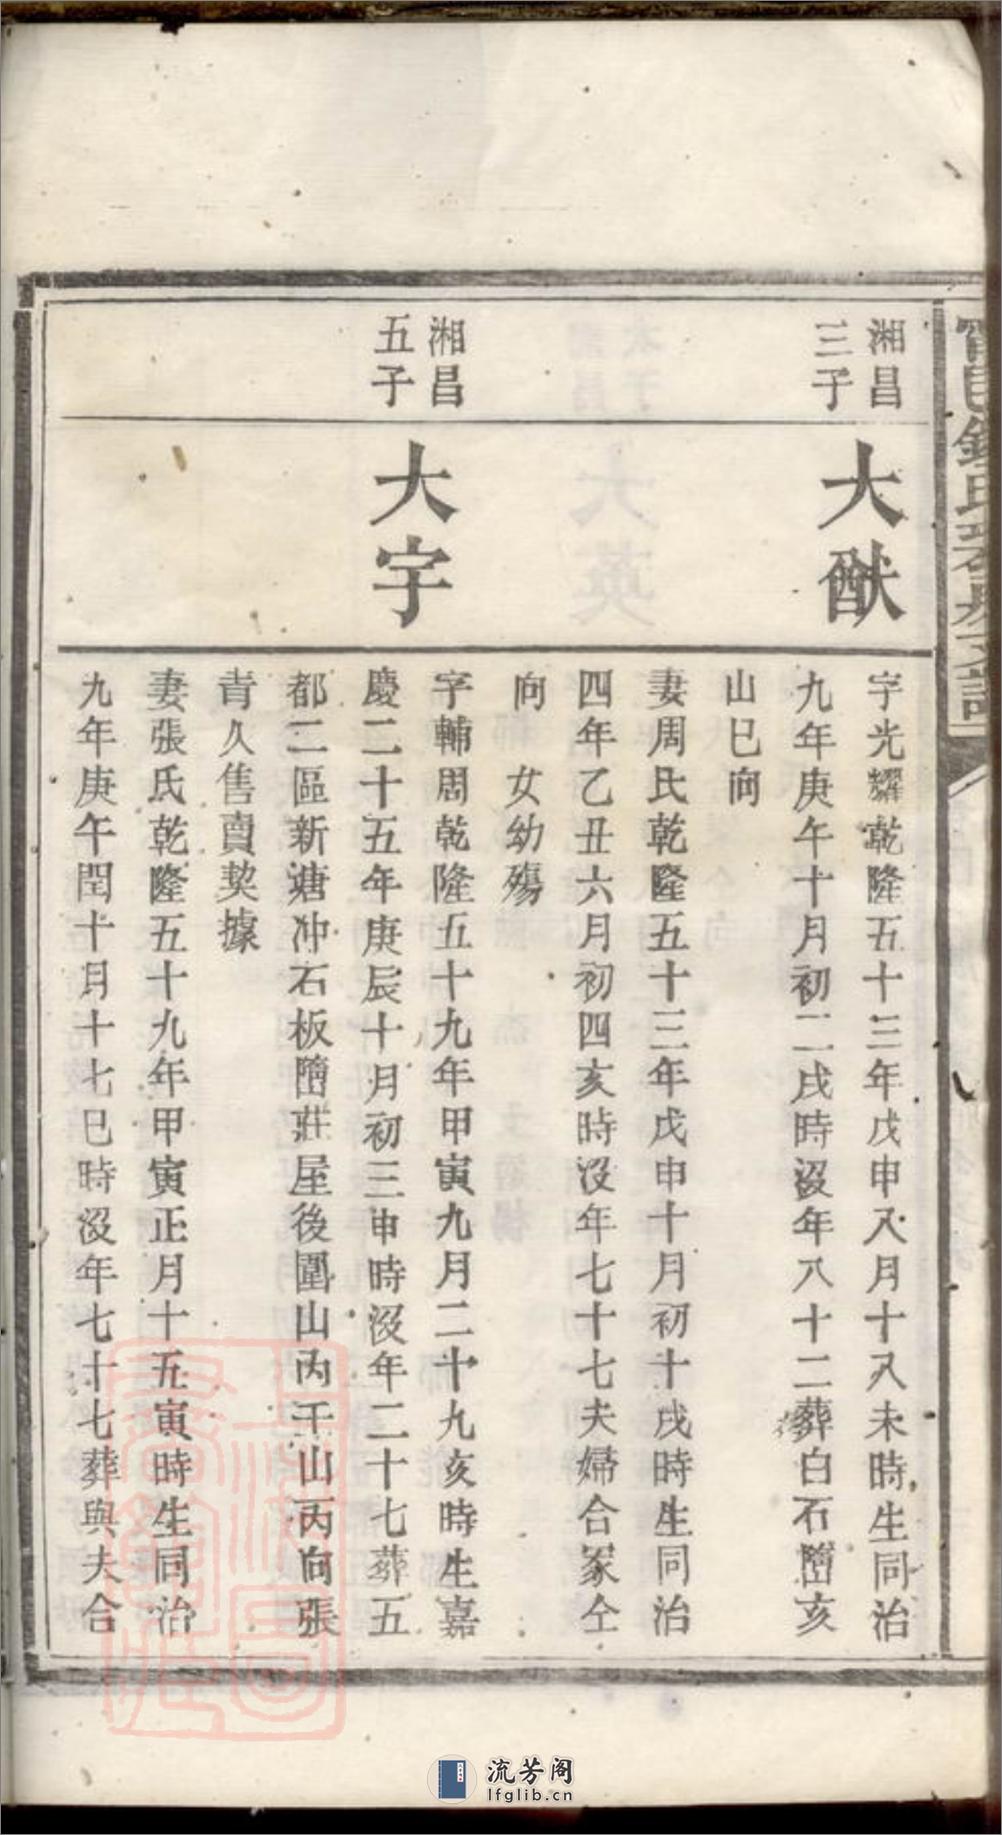 湘昌
三子
大猷
字光耀乾隆五十三年戊申八月十八未時生同治
九年庚午十月初二戌時沒年八十二葬白石墦亥
山巳向
妻周氏乾隆五十三年戊申十月初十戌時生同治
四年乙丑六月初四亥時沒年七十七夫婦合冢仝
向 女幼殤
湘昌
五子
大字
字輔周乾隆五十九年甲寅九月二十九亥時生嘉
慶二十五年庚辰十月初三申時沒年二十七葬五
都二區新塘冲石板墦莊屋後圍山內壬山丙向張
青久售賣契據
妻張氏乾隆五十九年甲寅正月十五寅時生同治
九年庚午閏十月十七巳時沒年七十七葬與夫合
流芳阁
lfglib.cn